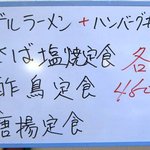 ルラーメン + ハンバーグ
さば塩焼定食
酢鳥定食
唐揚定食
各
480